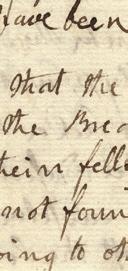 have been
that the
the Brea
their fell
not foun
ing to ot